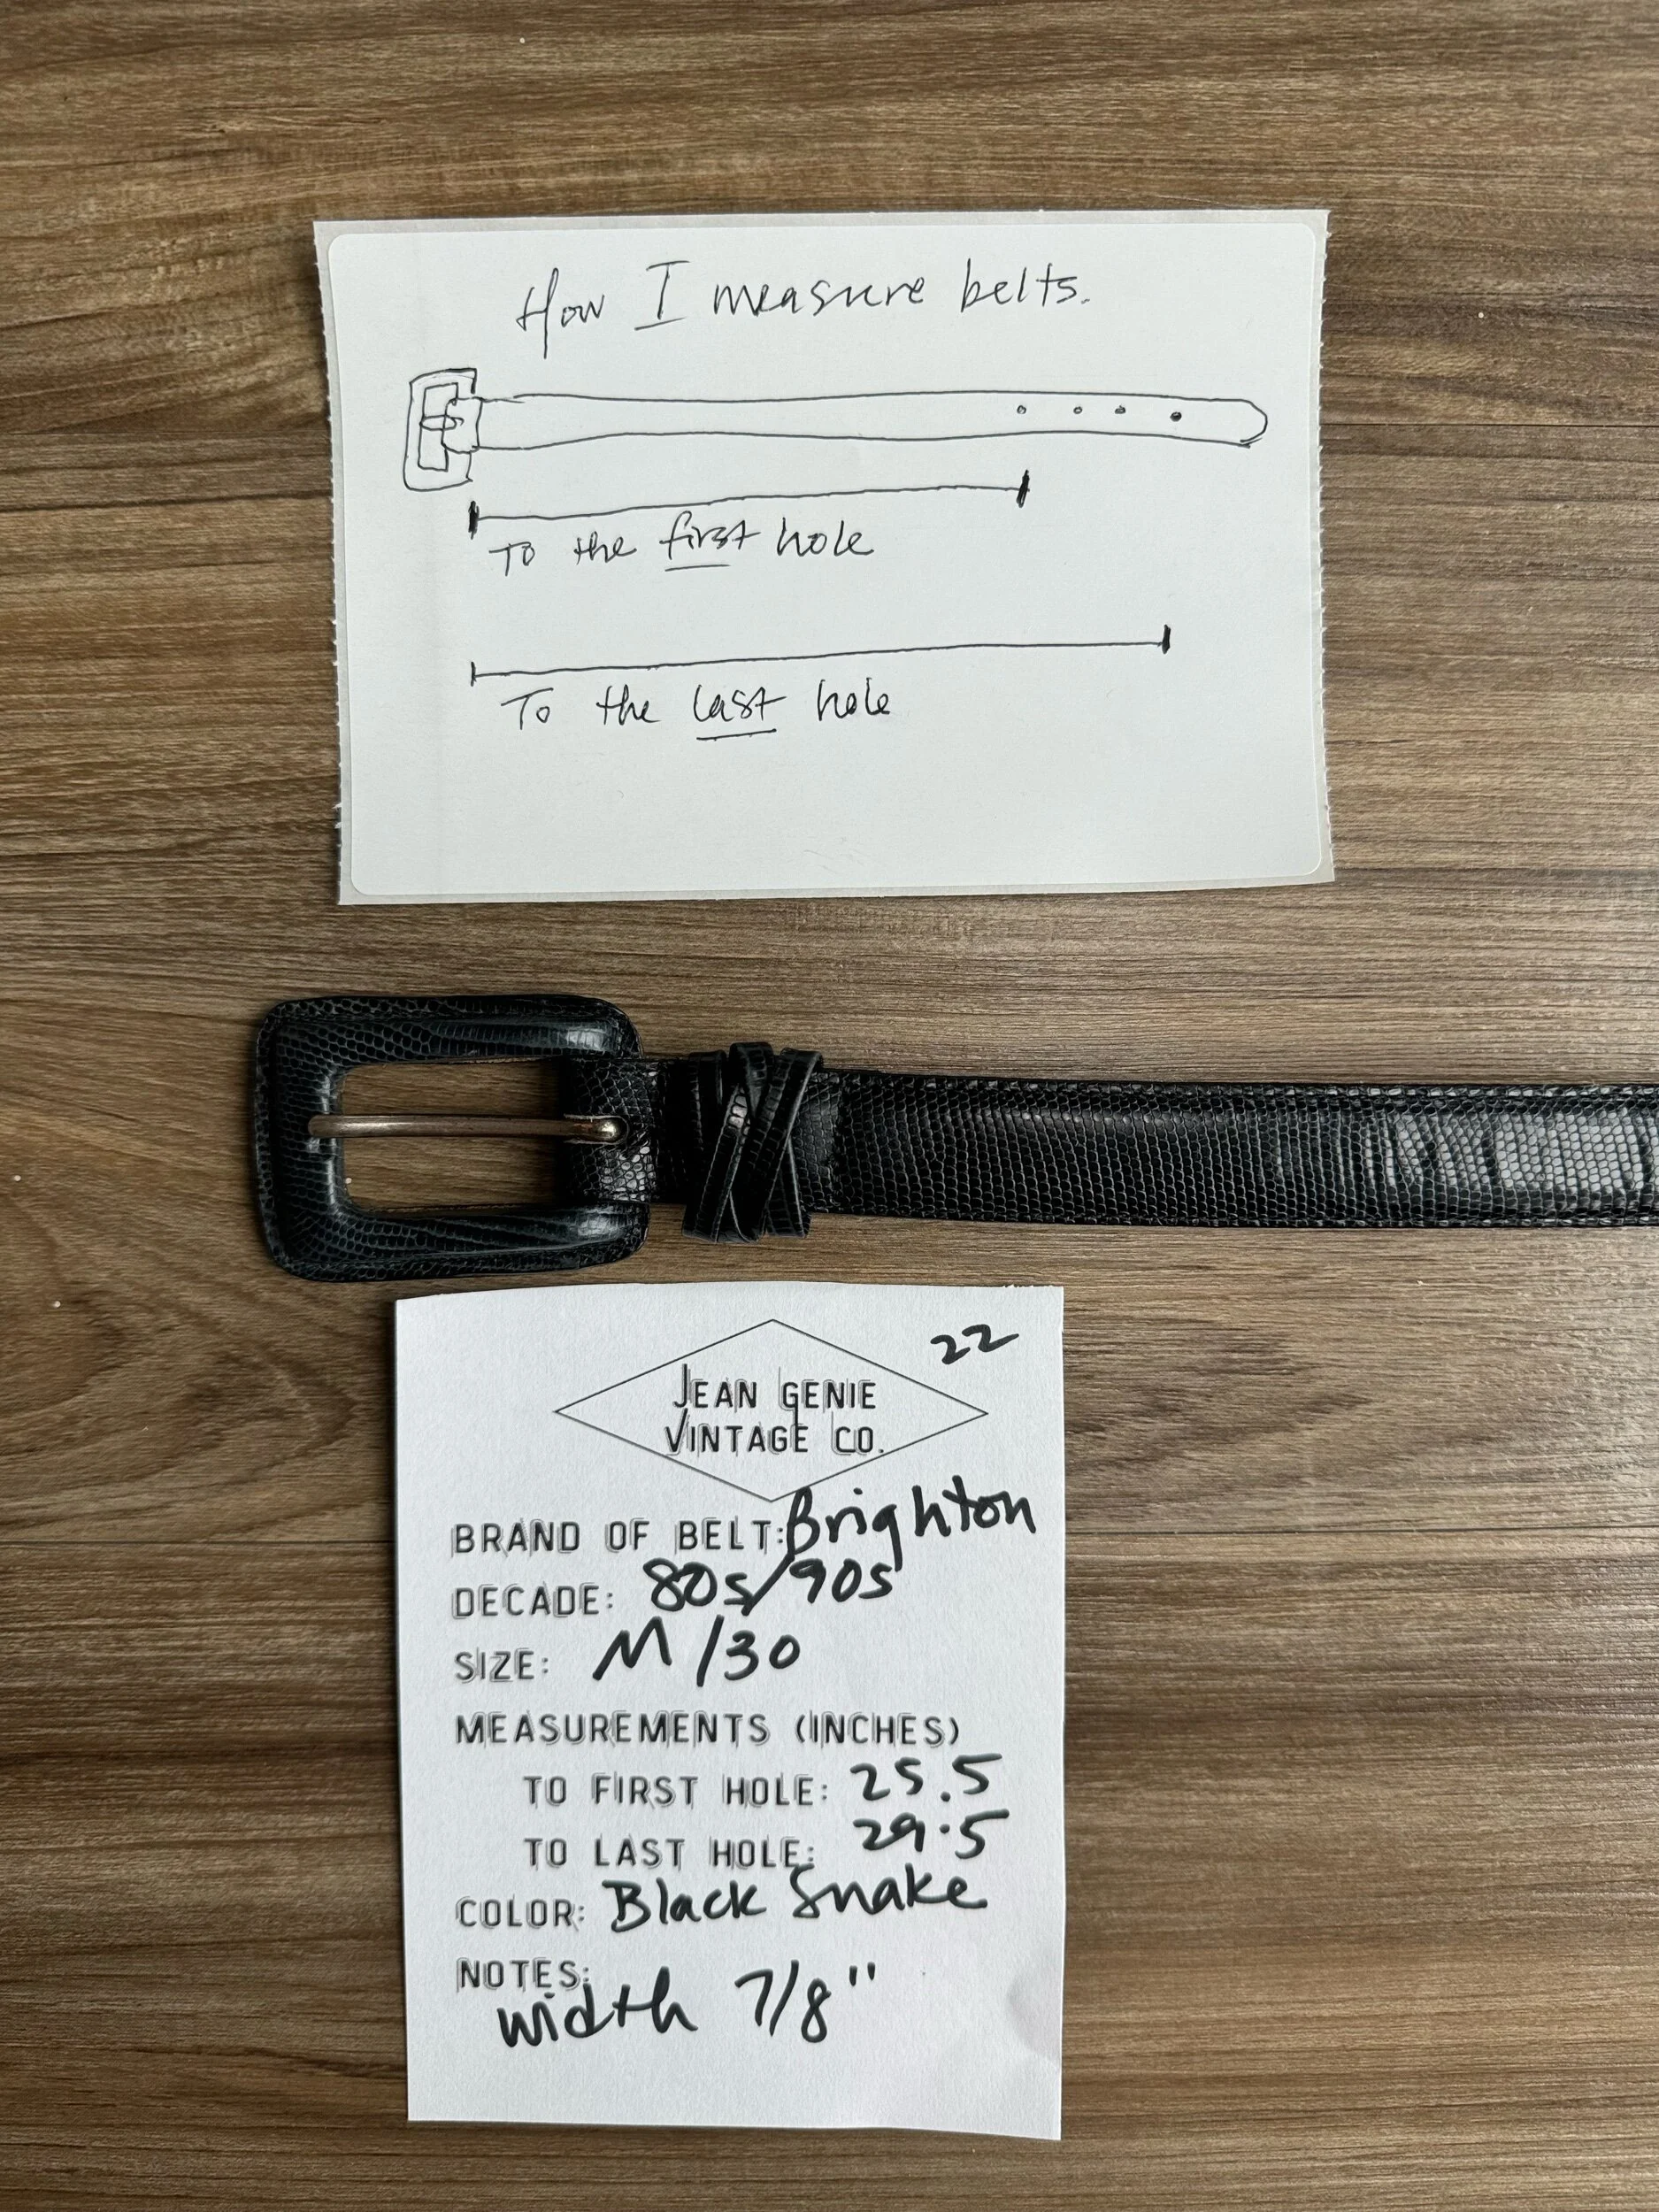 How I measure belts.
To the first hole
To the last hole
22
JEAN GENIE
VINTAGE CO.
BRAND OF BELT: Brighton
DECADE: 80s/90s
SIZE: M/30
MEASUREMENTS (INCHES)
TO FIRST HOLE: 25.5
TO LAST HOLE: 29.5
COLOR: Black Snake
NOTES:
width 7/8"